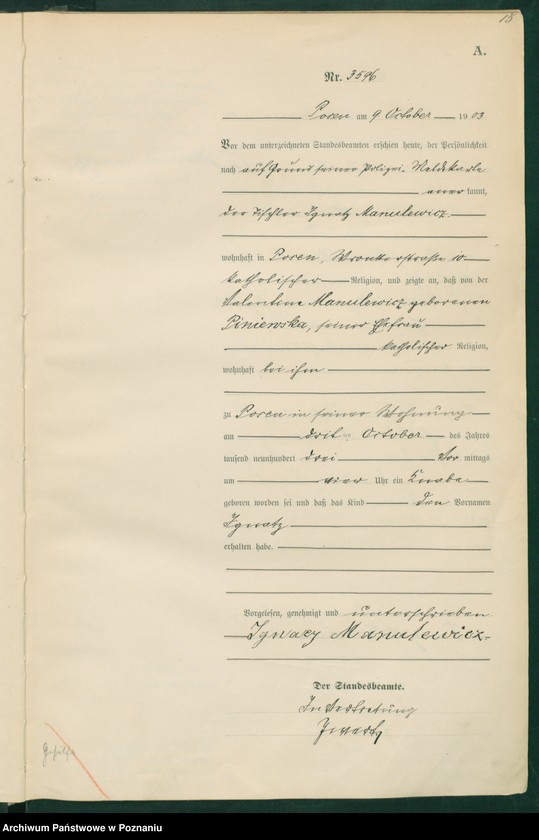 18
A.
Nr. 3596
Posen am 9 October 1903
Vor dem unterzeichneten Standesbeamten erschien heute, der Persönlichkeit
nach auf Grund seiner Polizei-Meldekarte
anerkannt,
der Tischler Ignatz Manulewicz
wohnhaft in Posen, Wronkerstraße 10
katholischer Religion, und zeigte an, daß von der
Valentine Manulewicz geborenen
Piniewska, seiner Ehefrau
katholischer Religion,
wohnhaft bei ihm
zu Posen in seiner Wohnung
am October des Jahres
tausend neunhundert drei Vormittags
um vier Uhr ein Knabe
geboren worden sei und daß das Kind den Vornamen
Ignatz
erhalten habe.
Vorgelesen, genehmigt und unterschrieben
Ignacy Manulewicz
Der Standesbeamte.
In Vertretung
Archiwum Państwowe w Poznaniu